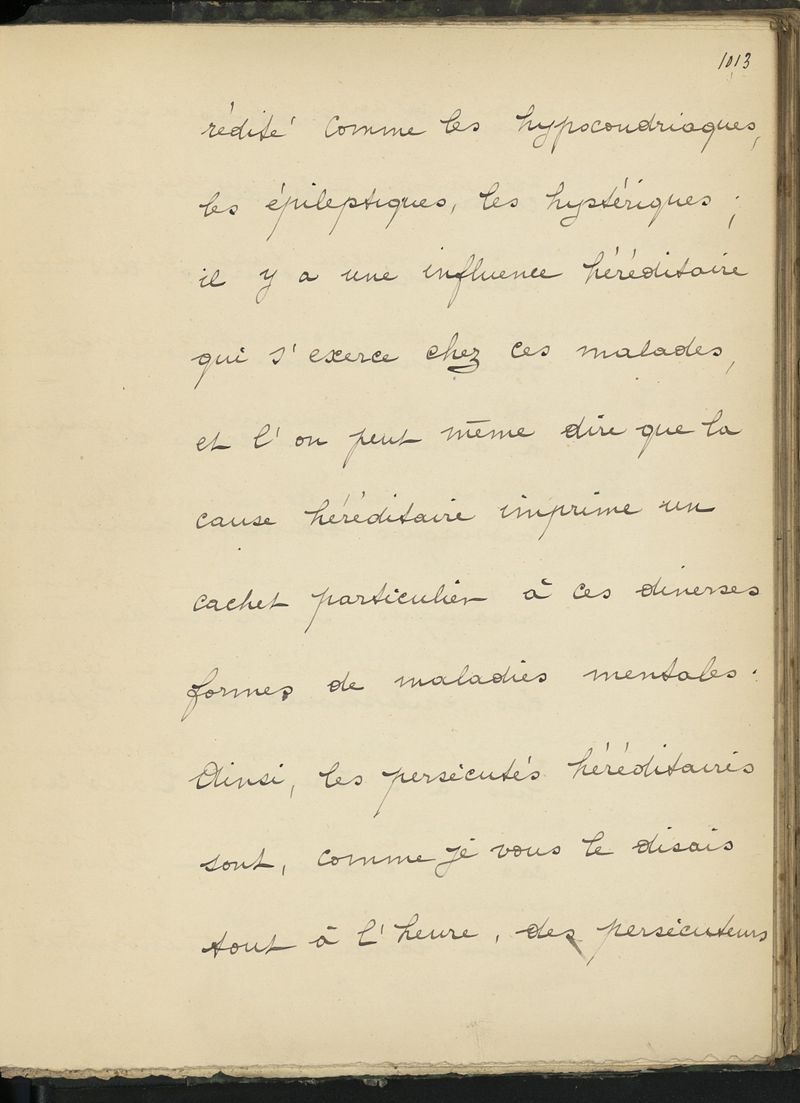 1013
rédité comme les hypocondriaques,
les épileptiques, les hystériques ;
il y a une influence héréditaire
qui s'exerce chez ces malades,
et l'on peut même dire que la
cause héréditaire imprime un
cachet particulier à ces diverses
formes de maladies mentales.
Ainsi, les persécutés héréditaires
sont, comme je vous le disais
tout à l'heure, des persécuteurs